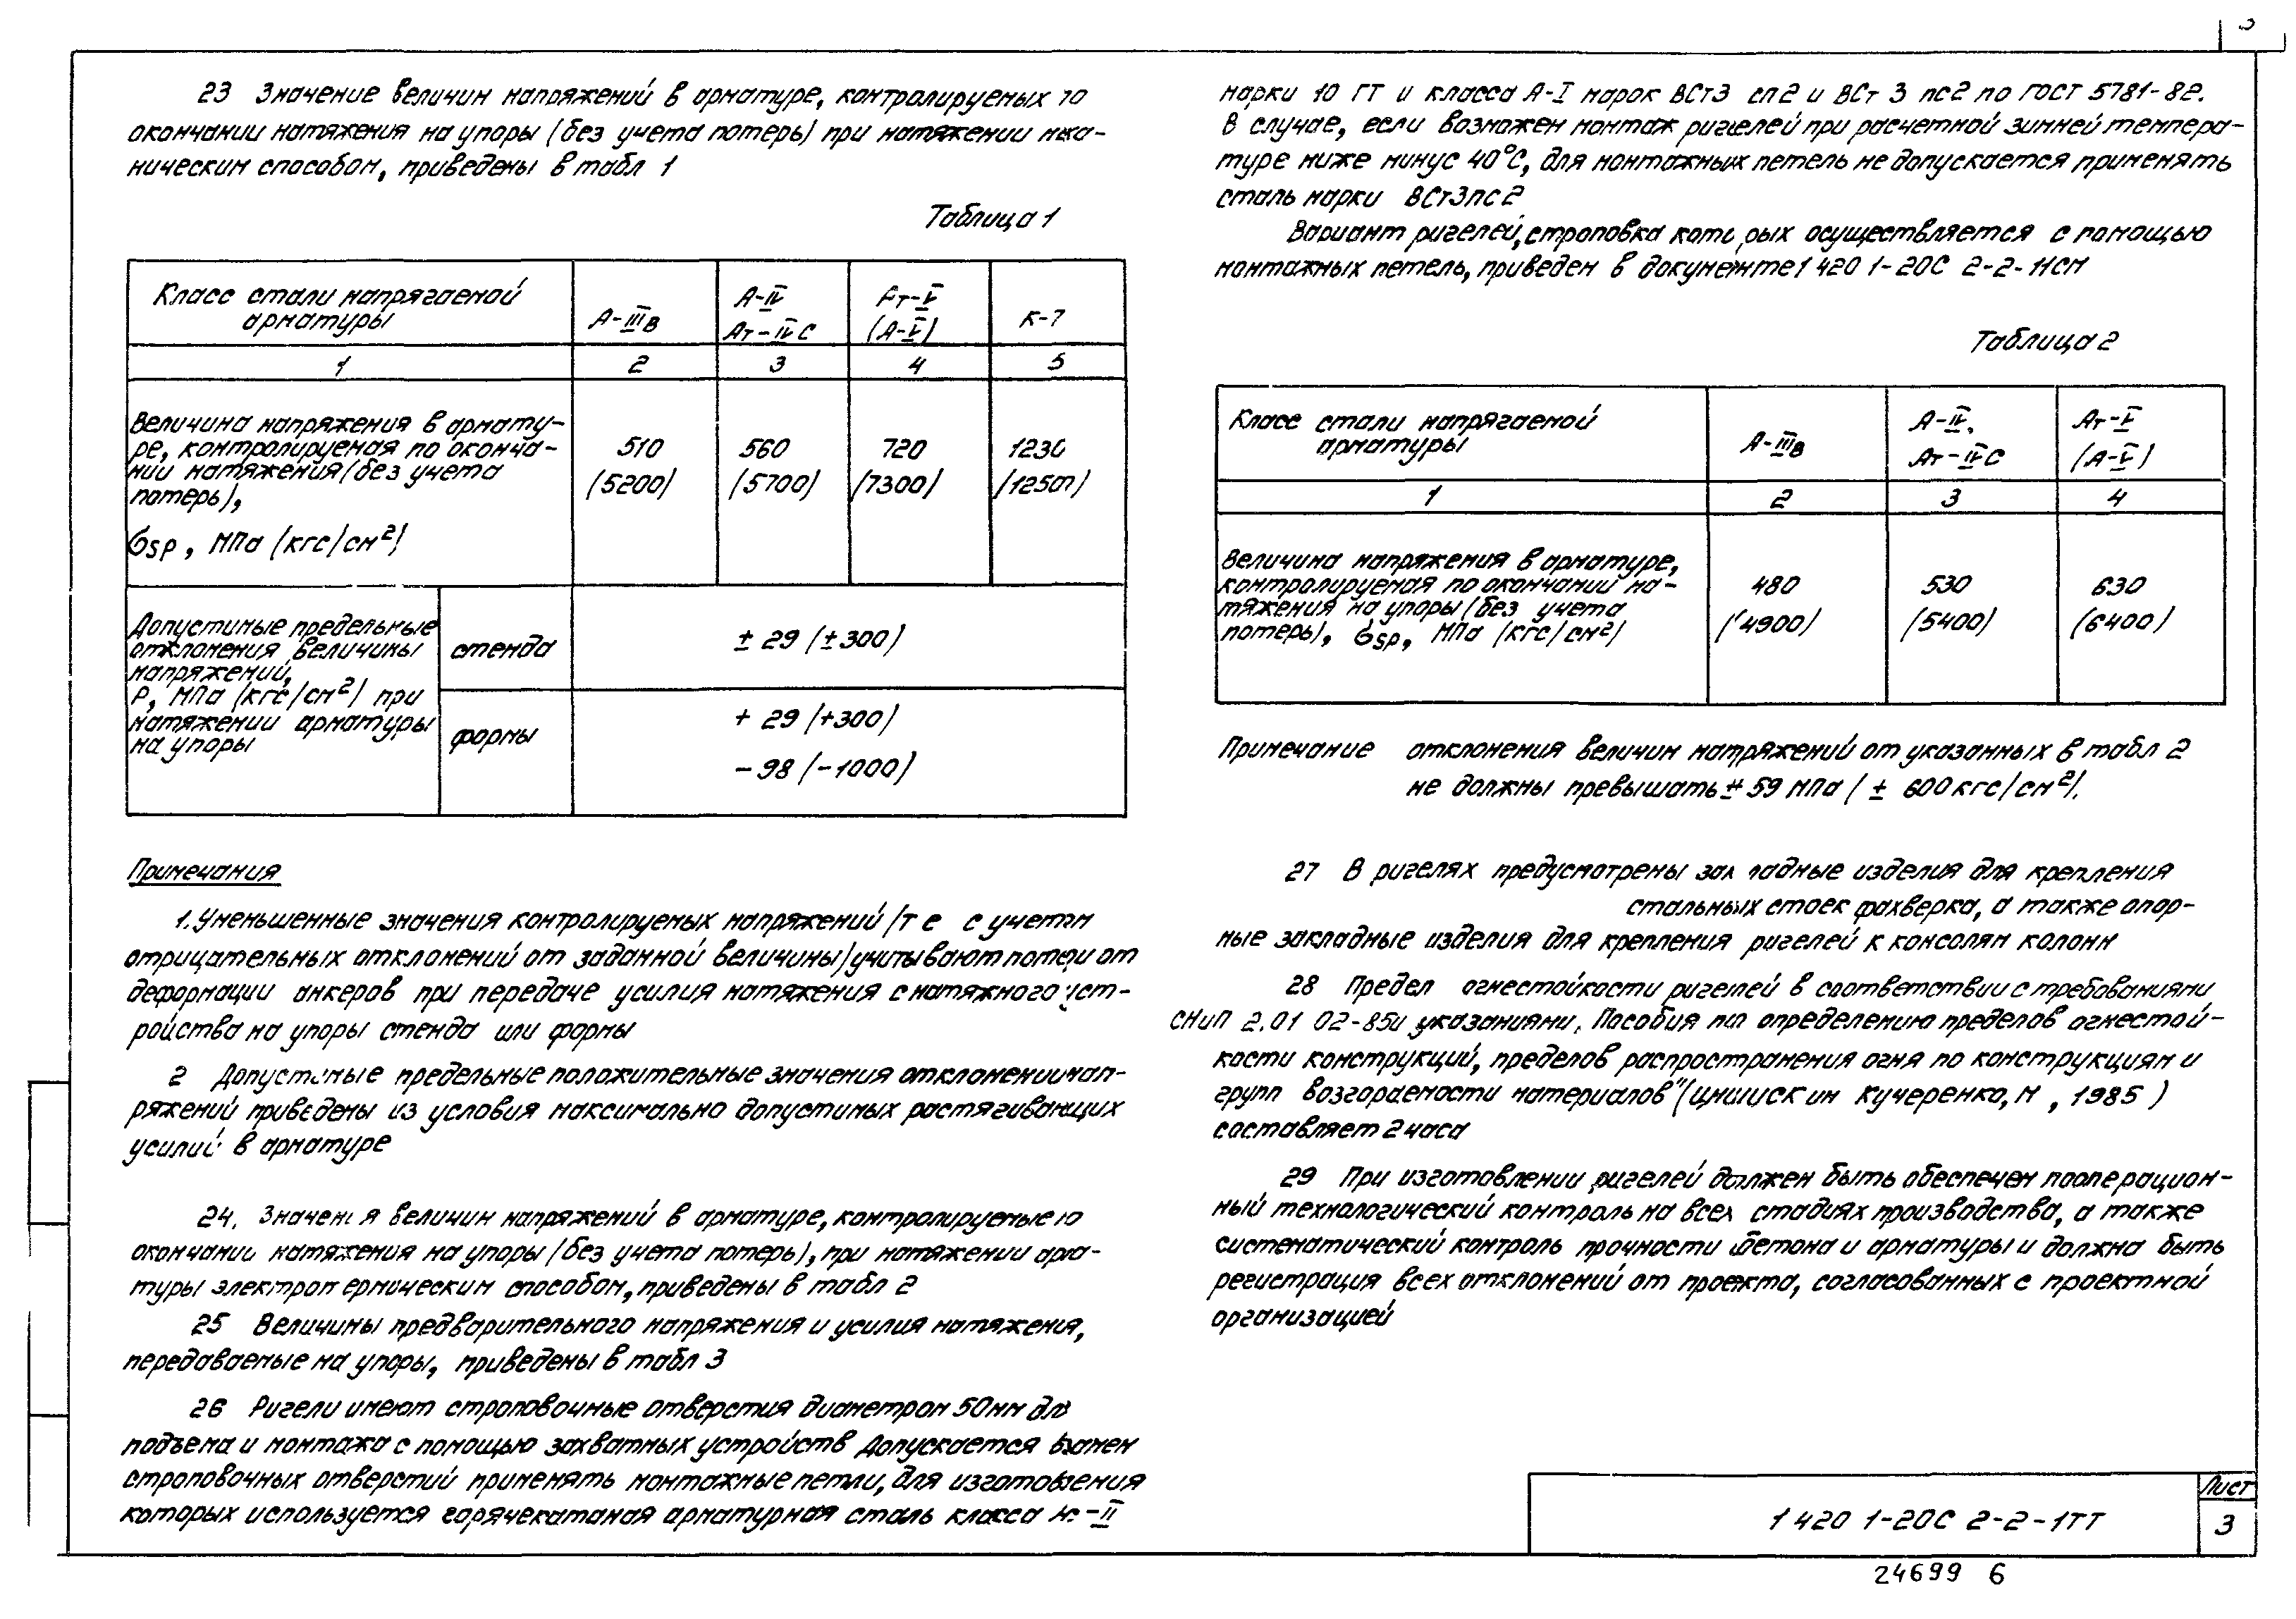 23 Значение величин напряжений в арматуре, контролируемых по
окончании натяжения на упоры (без учета потерь) при натяжении меха-
ническим способом, приведены в табл 1
Таблица 1
Класс стали напрягаемой
арматуры
А-IIIв
А-IV
Ат-IVС
Ат-V
(А-V)
К-7
1 2 3 4 5
Величина напряжения в армату-
ре, контролируемая по оконча-
нии натяжения (без учета
потерь),
σsp, МПа (кгс/см²)
510 560 720 1230
(5200) (5700) (7300) (12500)
Допустимые предельные
отклонения величины
напряжений,
Р, МПа (кгс/см²) при
натяжении арматуры
на упоры
стенда
± 29 (±300)
формы
+ 29 (+300)
- 98 (-1000)
Примечания
1. Уменьшенные значения контролируемых напряжений (т е с учетом
отрицательных отклонений от заданной величины) учитывают потери от
деформации анкеров при передаче усилия натяжения с натяжного уст-
ройства на упоры стенда или формы
2 Допустимые предельные положительные значения отклонений нап-
ряжений приведены из условия максимально допустимых растягивающих
усилий в арматуре
24. Значения величин напряжений в арматуре, контролируемые по
окончании натяжения на упоры (без учета потерь), при натяжении арма-
туры электротермическим способом, приведены в табл 2
25 Величины предварительного напряжения и усилия натяжения,
передаваемые на упоры, приведены в табл 3
26 Ригели имеют строповочные отверстия диаметром 50мм для
подъема и монтажа с помощью захватных устройств Допускается взамен
строповочных отверстий применять монтажные петли, для изготовления
которых используется горячекатаная арматурная сталь класса Ас-II
марки 10 ГТ и класса А-I марок ВСт3 сп2 и ВСт 3 пс2 по ГОСТ 5781-82.
В случае, если возможен монтаж ригелей при расчетной зимней темпера-
туре ниже минус 40°С, для монтажных петель не допускается применять
сталь марки ВСт3пс2
Вариант ригелей, строповка которых осуществляется с помощью
монтажных петель, приведен в документе 1 420 1-20С 2-2-11СМ
Таблица 2
Класс стали напрягаемой
арматуры
А-IIIв
А-IV,
Ат-IVС
Ат-V
(А-V)
1 2 3 4
Величина напряжения в арматуре,
контролируемая по окончании на-
тяжения на упоры (без учета
потерь), σsp, МПа (кгс/см²)
480 530 630
(4900) (5400) (6400)
Примечание отклонения величин напряжений от указанных в табл 2
не должны превышать ± 59 МПа (± 600 кгс/см²).
27 В ригелях предусмотрены закладные изделия для крепления
стальных стоек фахверка, а также опор-
ные закладные изделия для крепления ригелей к консолям колонн
28 Предел огнестойкости ригелей в соответствии с требованиями
СНиП 2.01 02-85 и указаниями „Пособия по определению пределов огнестой-
кости конструкций, пределов распространения огня по конструкциям и
групп возгораемости материалов" (ЦНИИСК им Кучеренко, М , 1985 )
составляет 2 часа
29 При изготовлении ригелей должен быть обеспечен пооперацион-
ный технологический контроль на всех стадиях производства, а также
систематический контроль прочности бетона и арматуры и должна быть
регистрация всех отклонений от проекта, согласованных с проектной
организацией
1 420 1-20С 2-2-1ТТ
Лист
3
24699 6